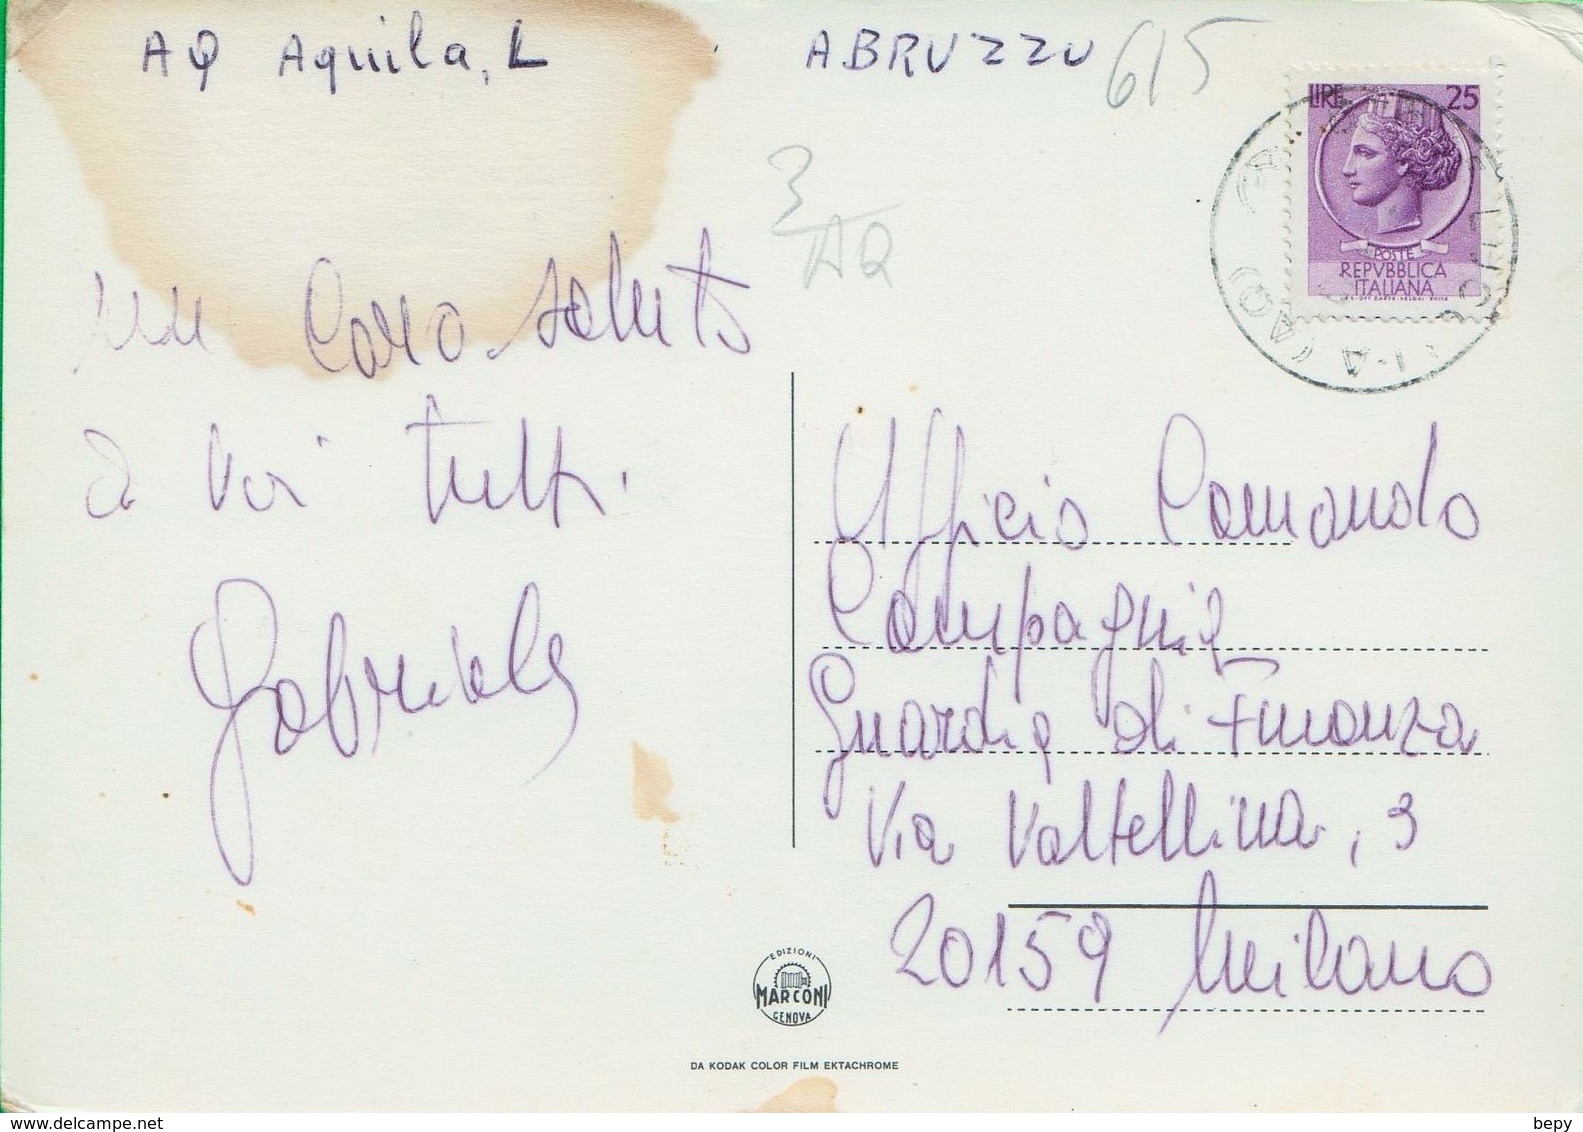 AQ Aquila, L
ABRUZZU
615
3
AQ
LIRE 25
POSTE
REPVBBLICA
ITALIANA
(AQ)
un Caro saluto
a voi tutti.
Gabriele
Ufficio Comando
Compagnia
Guardia di Finanza
Via Valtellina, 3
20159 Milano
EDIZIONI
MARCONI
GENOVA
DA KODAK COLOR FILM EKTACHROME
delcampe.net
bepy